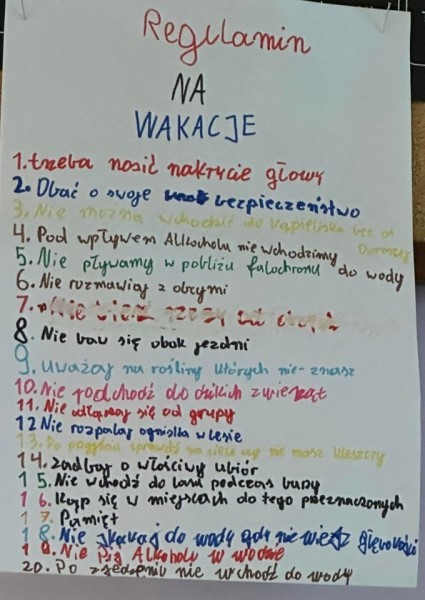 Regulamin
NA
WAKACJE
1. trzeba nosić nakrycie głowy
2. Dbać o swoje bezpieczeństwo
3. Nie można wchodzić do kąpieliska bez
4. Pod wpływem Allkocholu nie wchodzimy do wody
5. Nie pływamy w pobliżu falochronu
6. Nie rozmawiaj z obcymi
7. Nie bierz rzeczy od
8. Nie baw się obok jezdni
9. Uważaj na rośliny których nie-znasz
10. Nie podchodź do dzikich zwierząt
11. Nie odłączaj się od grupy
12 Nie rozpalaj ogniska w lesie
13. Po sprawdź na ciele czy nie masz kleszczy
14. zadbaj o właściwy ubiór
15. Nie wchodź do lasu podczas burzy
16. Kąp się w miejscach do tego przeznaczonych
17. Pamięt
18. Nie skakaj do wody gdy nie wiesz
19. Nie pij Alkoholu w wodzie
20. Po zjedzeniu nie wchodź do wody